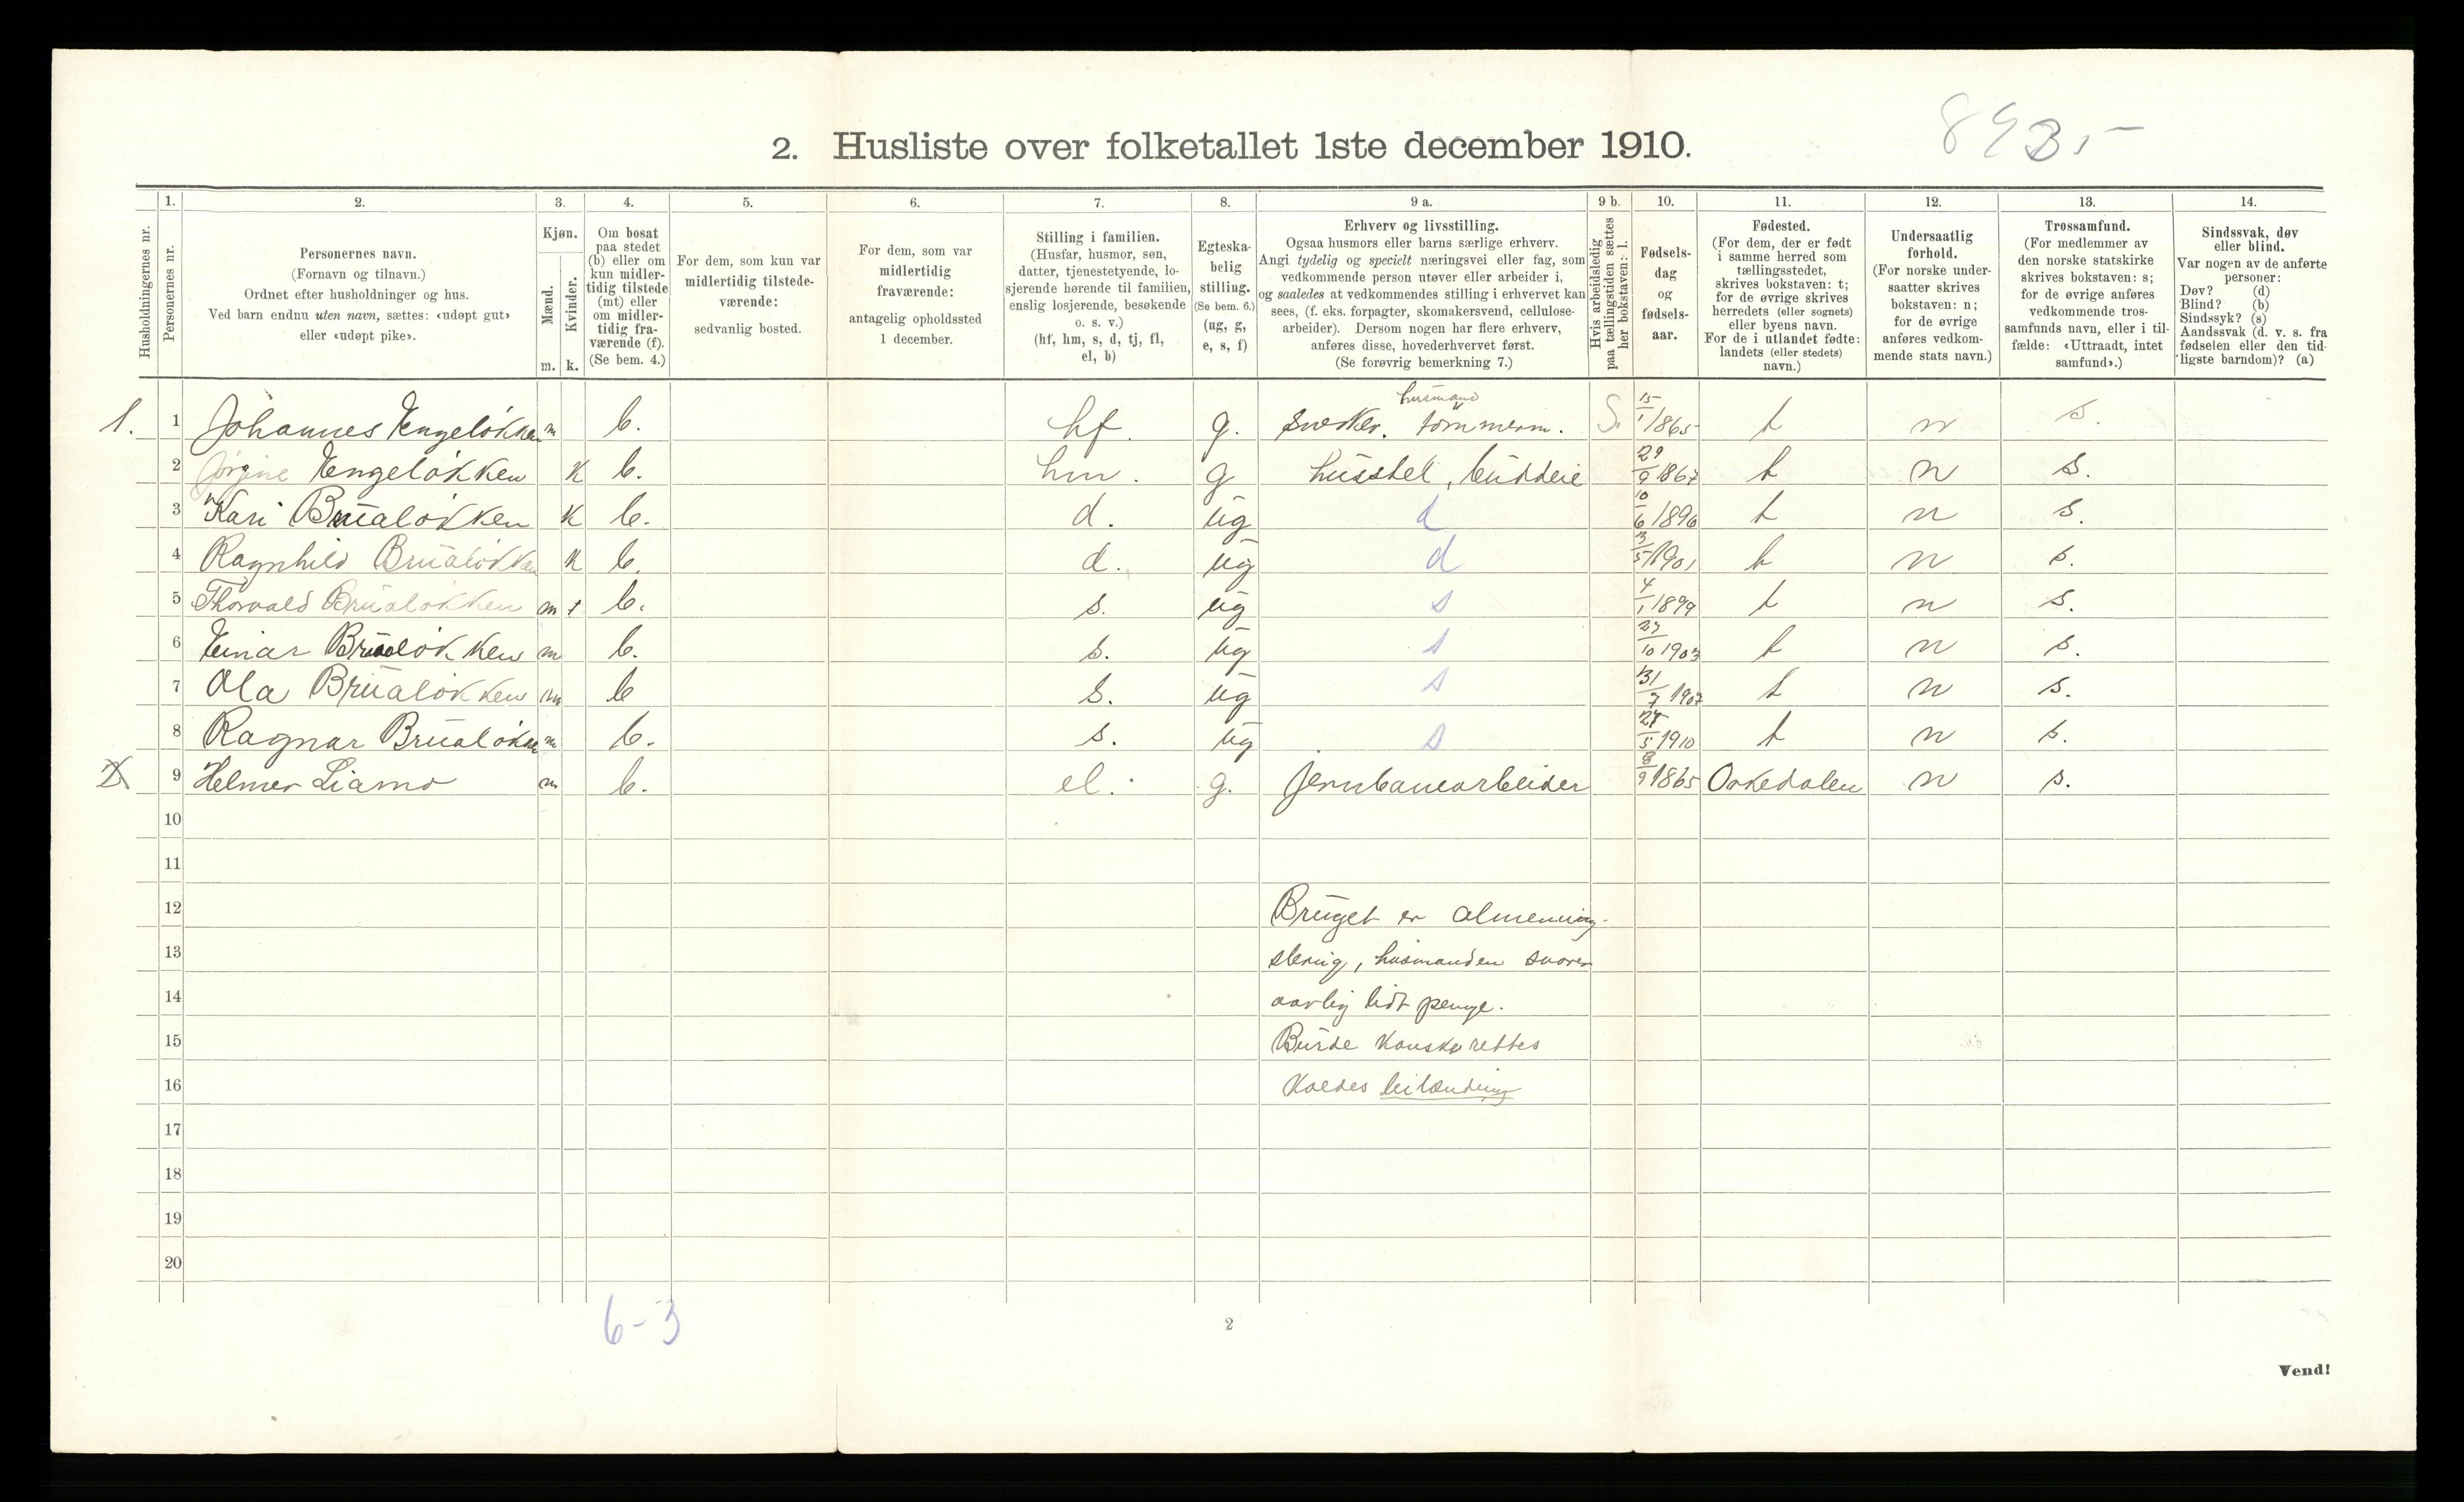 893,-
2. Husliste over folketallet 1ste december 1910.
Husholdningernes nr.
1.
Personernes nr.
2.
Personernes navn.
(Fornavn og tilnavn.)
Ordnet efter husholdninger og hus.
Ved barn endnu uten navn, sættes: «udøpt gut»
eller «udøpt pike».
3.
Kjøn.
Mænd.
Kvinder.
m. k.
4.
Om bosat
paa stedet
(b) eller om
kun midler-
tidig tilstede
(mt) eller
om midler-
tidig fra-
værende (f).
(Se bem. 4.)
5.
For dem, som kun var
midlertidig tilstede-
værende:
sedvanlig bosted.
6.
For dem, som var
midlertidig
fraværende:
antagelig opholdssted
1 december.
7.
Stilling i familien.
(Husfar, husmor, søn,
datter, tjenestetyende, lo-
sjerende hørende til familien,
enslig losjerende, besøkende
o. s. v.)
(hf, hm, s, d, tj, fl,
el, b)
8.
Egteska-
belig
stilling.
(Se bem. 6.)
(ug, g,
e, s, f)
9 a.
Erhverv og livsstilling.
Ogsaa husmors eller barns særlige erhverv.
Angi tydelig og specielt næringsvei eller fag, som
vedkommende person utøver eller arbeider i,
og saaledes at vedkommendes stilling i erhvervet kan
sees, (f. eks. forpagter, skomakersvend, cellulose-
arbeider). Dersom nogen har flere erhverv,
anføres disse, hovederhvervet først.
(Se forøvrig bemerkning 7.)
9 b.
Hvis arbeidsledig
paa tællingstiden sættes
her bokstaven: l.
10.
Fødsels-
dag
og
fødsels-
aar.
11.
Fødested.
(For dem, der er født
i samme herred som
tællingsstedet,
skrives bokstaven: t;
for de øvrige skrives
herredets (eller sognets)
eller byens navn.
For de i utlandet fødte:
landets (eller stedets)
navn.)
12.
Undersaatlig
forhold.
(For norske under-
saatter skrives
bokstaven: n;
for de øvrige
anføres vedkom-
mende stats navn.)
13.
Trossamfund.
(For medlemmer av
den norske statskirke
skrives bokstaven: s;
for de øvrige anføres
vedkommende tros-
samfunds navn, eller i til-
fælde: «Uttraadt, intet
samfund».)
14.
Sindssvak, døv
eller blind.
Var nogen av de anførte
personer:
Døv? (d)
Blind? (b)
Sindssyk? (s)
Aandssvak (d. v. s. fra
fødselen eller den tid-
ligste barndom)? (a)
husmand
1. 1 Johannes Engeløkken m b. hf. g. snekker. tømmerm. S. 15/1 1865 t n s.
2 Jørgine Engeløkken k b. hm. g husstel, buddeie 29/9 1867 t n s.
3 Kari Brualøkken k b. d. ug d 10/6 1896 t n s.
4 Ragnhild Brualøkken k b. d. ug d 3/5 1901 t n s.
5 Thorvald Brualøkken m b. s. ug s 4/1 1899 t n s.
6 Einar Brualøkken m b. s. ug s 27/10 1903 t n s.
7 Ola Brualøkken m b s. ug s 31/7 1907 t n s.
8 Ragnar Brualøkken m b. s. ug s 27/5 1910 t n s.
2 9 Helmer Liamo m b. el. g. Jernbanearbeider 8/9 1865 Orkedalen n s.
10
11
12 Bruget er almenning-
13 sbrug, husmanden svarer
14 aarlig lidt penge.
15 Burde kanske rettes
16 kaldes leilænding
17
18
19
20
6-3
2
Vend!